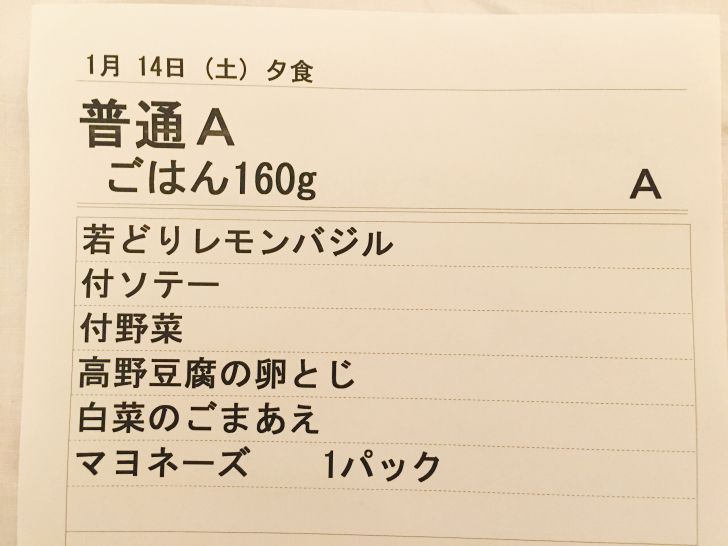 1月 14日 (土) 夕食
普通A
ごはん160g A
若どりレモンバジル
付ソテー
付野菜
高野豆腐の卵とじ
白菜のごまあえ
マヨネーズ 1パック